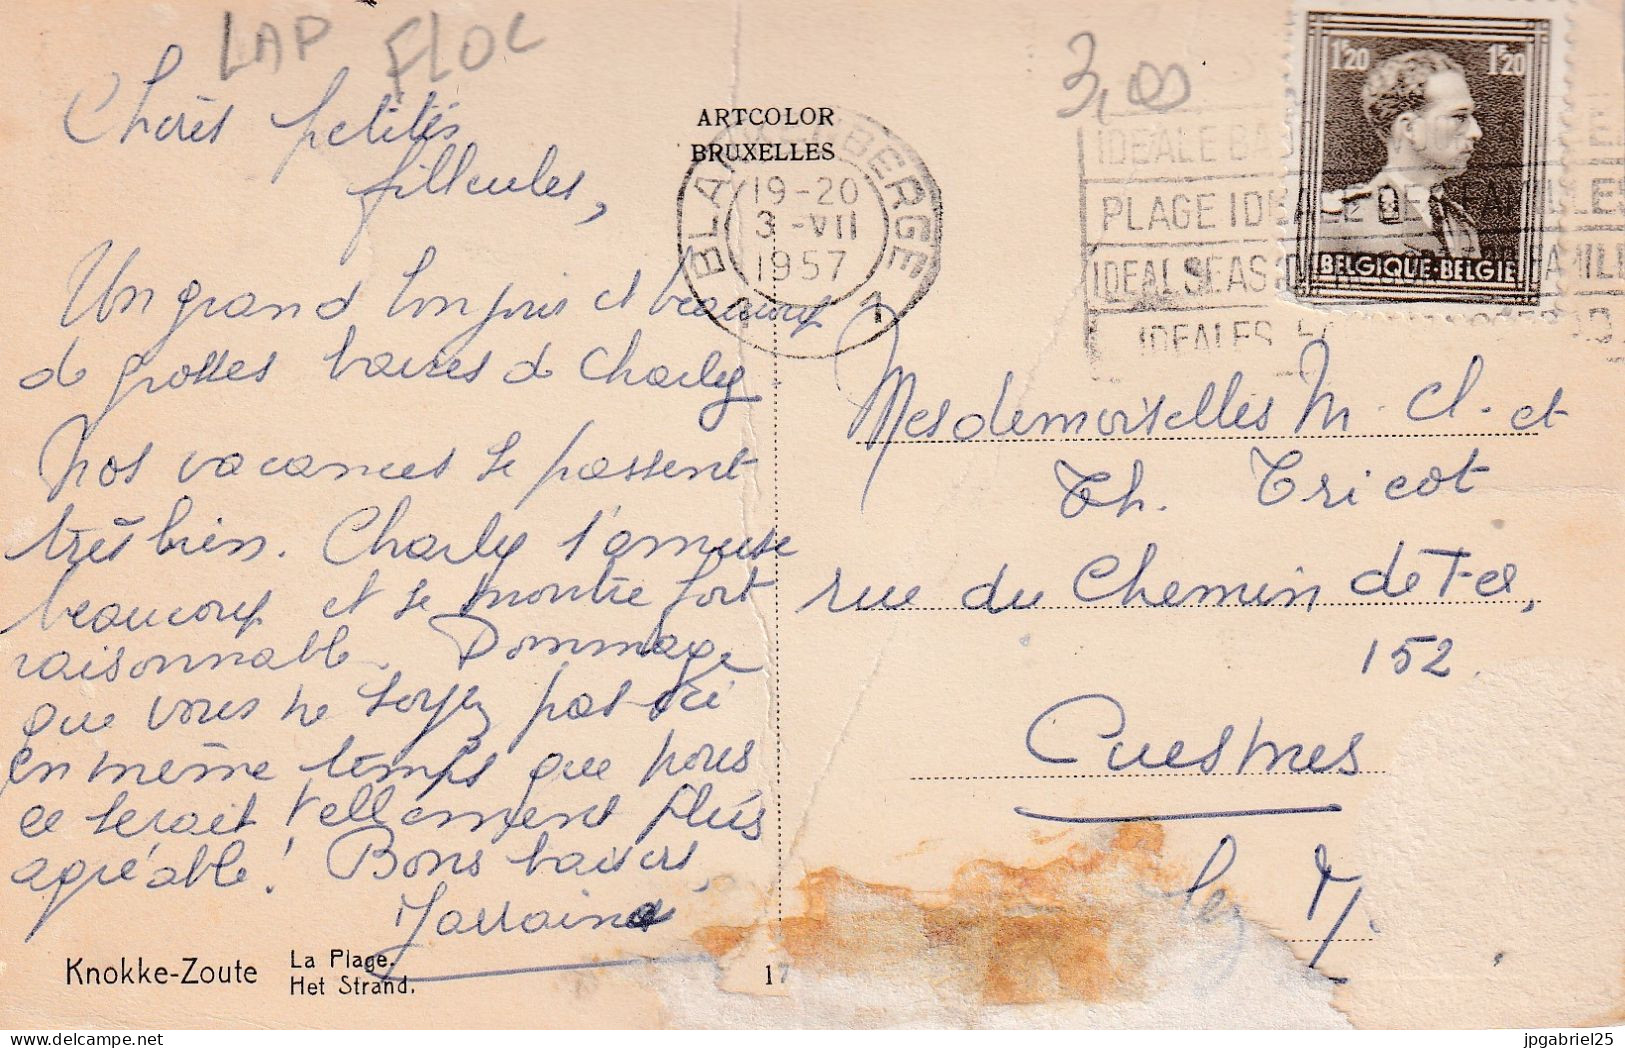 LAP FLOC
Chères petites
filleules,
Un grand bonjour et beaucoup
de grosses baises de Charly.
Nos vacances se passent
très bien. Charly s'amuse
beaucoup et se montre fort
raisonnable. Dommage
que vous ne soyez pas ici
en même temps que nous
ce serait tellement plus
agréable! Bons baisers,
Marraine
Knokke-Zoute
La Plage.
Het Strand.
ARTCOLOR
BRUXELLES
BLANKENBERGE
19-20
3-VII
1957
1 1
17
3,00
1F20 1F20
BELGIQUE-BELGIE
IDEALE
PLAGE IDEALE DES FAMILLES
IDEAL SEAS
IDEALES
Mesdemoiselles M. Cl. et
Th. Tricot
rue du Chemin de Fer,
152.
Cuesmes
lez M.
jpgabriel25